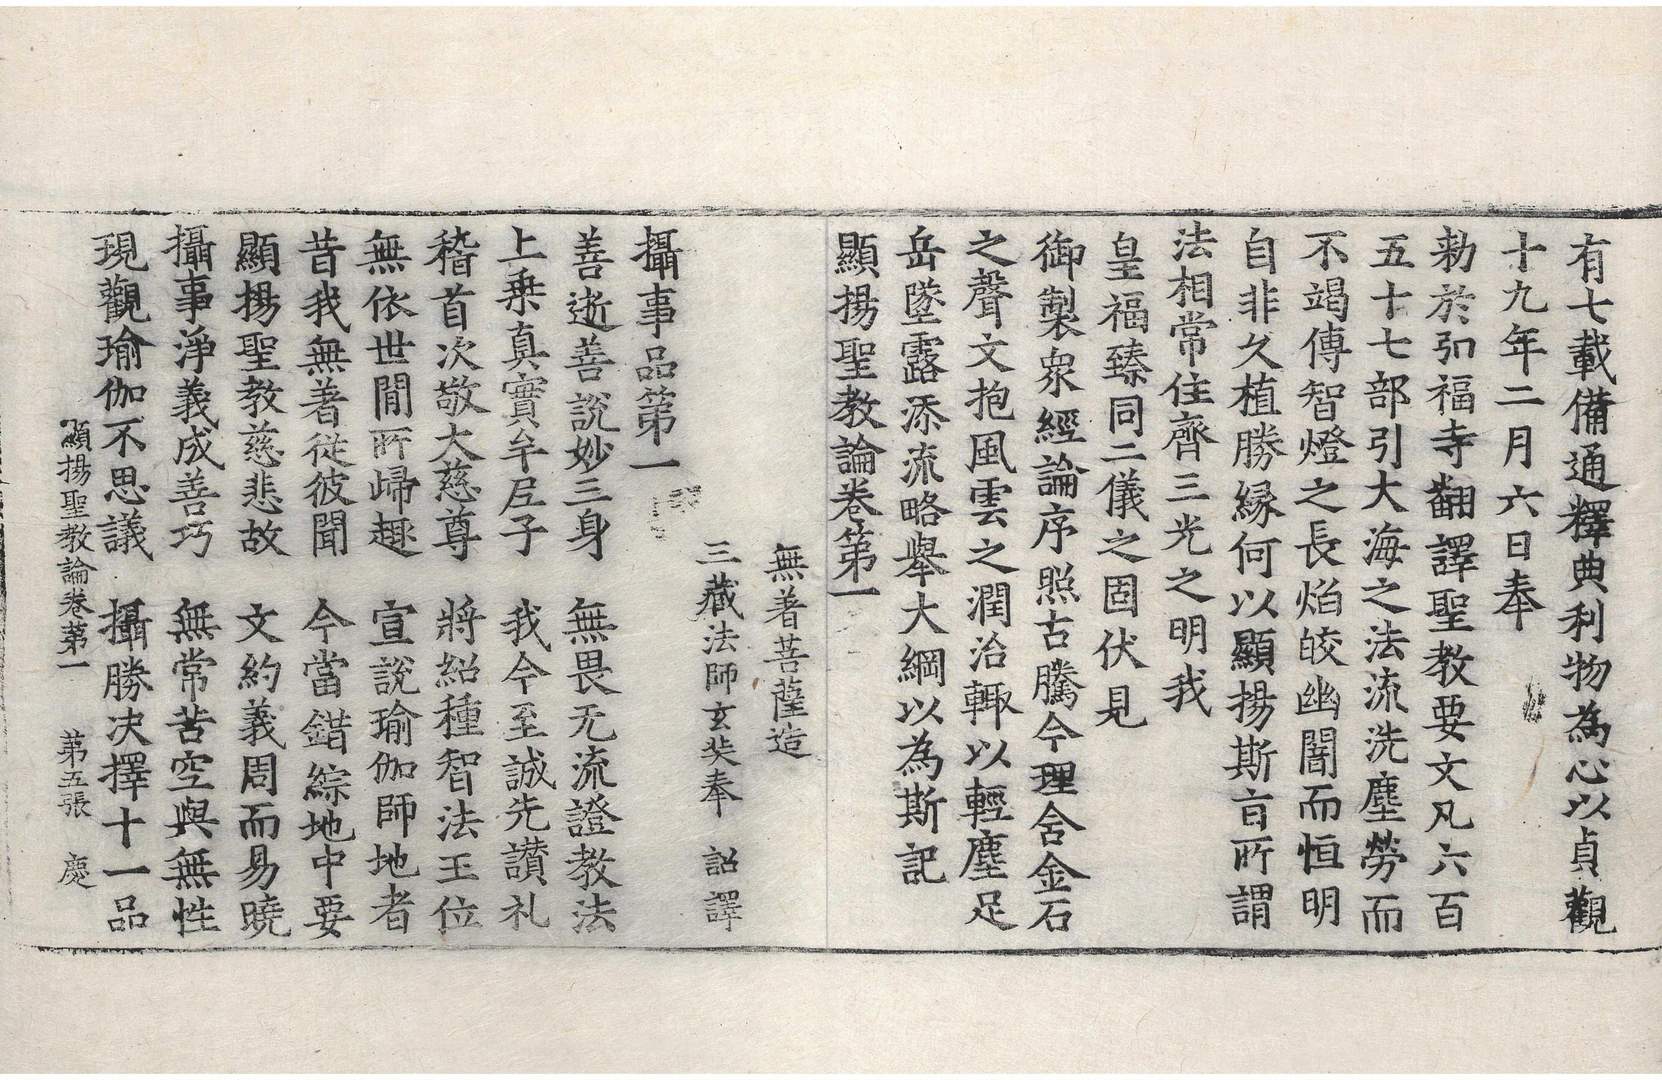 有七載備通釋典利物為心以貞觀
十九年二月六日奉
勑於弘福寺翻譯聖教要文凡六百
五十七部引大海之法流洗塵勞而
不竭傳智燈之長焰皎幽闇而恒明
自非久植勝緣何以顯揚斯旨所謂
法相常住齊三光之明我
皇福臻同二儀之固伏見
御製衆經論序照古騰今理含金石
之聲文抱風雲之潤治輙以輕塵足
岳墜露添流略舉大綱以為斯記
顯揚聖教論卷第一
無著菩薩造
三藏法師玄奘奉 詔譯
攝事品第一
善逝善說妙三身 無畏无流證教法
上乗真實牟尼子 我今至誠先讃礼
稽首次敬大慈尊 將紹種智法王位
無依世間所歸趣 宣說瑜伽師地者
昔我無著從彼聞 今當錯綜地中要
顯揚聖教慈悲故 文約義周而易曉
攝事淨義成善巧 無常苦空與無性
現觀瑜伽不思議 攝勝決擇十一品
顯揚聖教論卷第一 第五張 慶